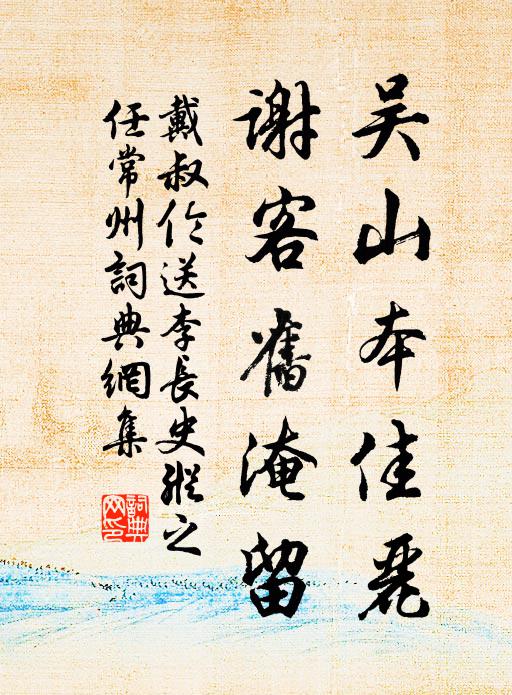 吴山本佳麗
謝客舊淹留
戴叔伦送李長史縱之
任常州詞典網集
詞典
网印